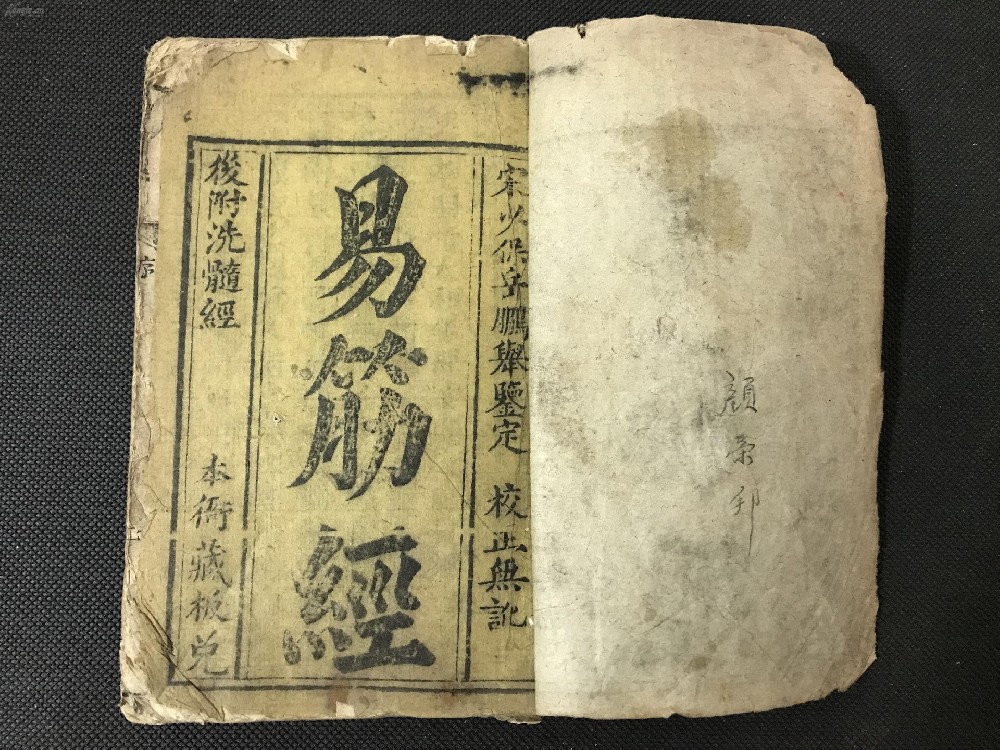 宋少保岳鵬舉鑒定 校正無訛
易筋經
後附洗髓經 本衙藏板兌
序
顏
邦